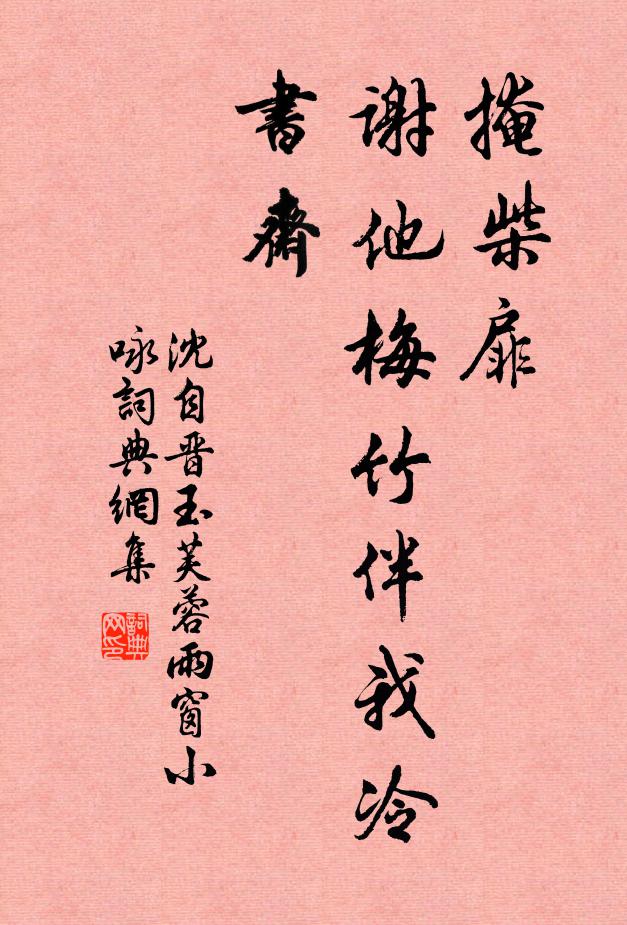 掩柴扉
謝他梅竹伴我冷
書齋
沈自晋玉芙蓉雨窗小
咏詞典網集
詞典
网印